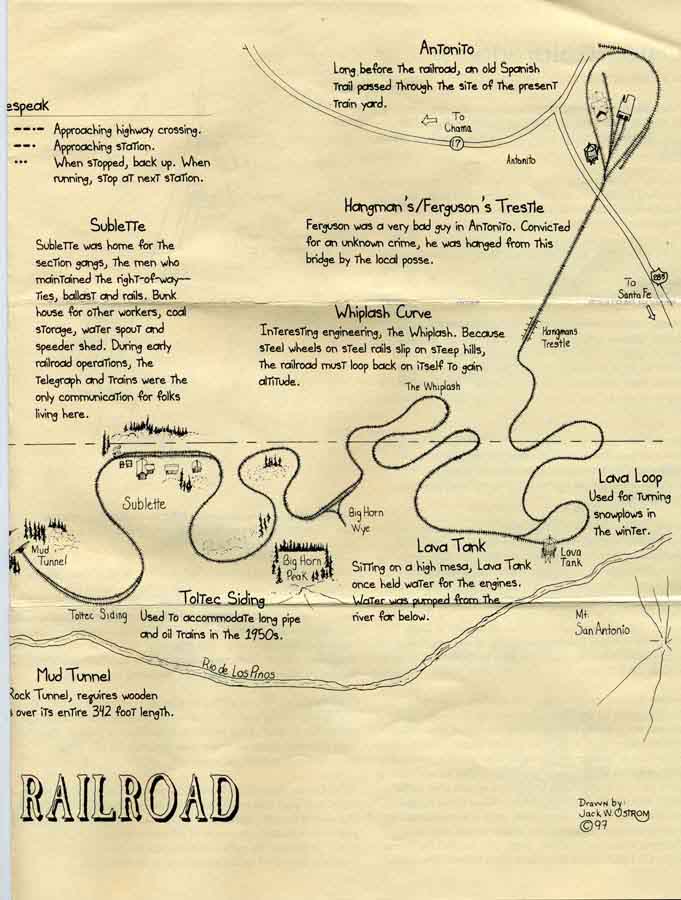 Antonito
Long before the railroad, an old Spanish
Trail passed through the site of the present
Train yard.
To
Chama
17
Antonito
espeak
Approaching highway crossing.
Approaching station.
When stopped, back up. When
running, stop at next station.
Hangman's/Ferguson's Trestle
Ferguson was a very bad guy in Antonito. Convicted
for an unknown crime, he was hanged from this
bridge by the local posse.
Sublette
Sublette was home for the
section gangs, the men who
maintained the right-of-way--
ties, ballast and rails. Bunk
house for other workers, coal
storage, water spout and
speeder shed. During early
railroad operations, the
telegraph and trains were the
only communication for folks
living here.
285
To
Santa Fe
Hangmans
Trestle
Whiplash Curve
Interesting engineering, the Whiplash. Because
steel wheels on steel rails slip on steep hills,
the railroad must loop back on itself to gain
altitude.
The Whiplash
Sublette
Big Horn
Wye
Lava Loop
Used for turning
snowplows in
the winter.
Mud
Tunnel
Big Horn
Peak
Lava Tank
Sitting on a high mesa, Lava Tank
once held water for the engines.
Water was pumped from the
river far below.
Lava
Tank
Toltec Siding
Toltec Siding
Used to accommodate long pipe
and oil trains in the 1950s.
Mt.
San Antonio
Rio de Los Pinos
Mud Tunnel
Rock Tunnel, requires wooden
over its entire 342 foot length.
RAILROAD
Drawn by:
Jack W. Ostrom
©97